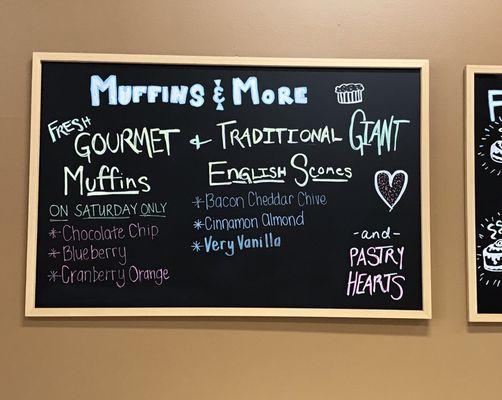 Muffins & More
Fresh
Gourmet & Traditional Giant
Muffins English Scones
On Saturday Only
* Chocolate Chip
* Blueberry
* Cranberry Orange
* Bacon Cheddar Chive
* Cinnamon Almond
* Very Vanilla
-and-
Pastry
Hearts
F